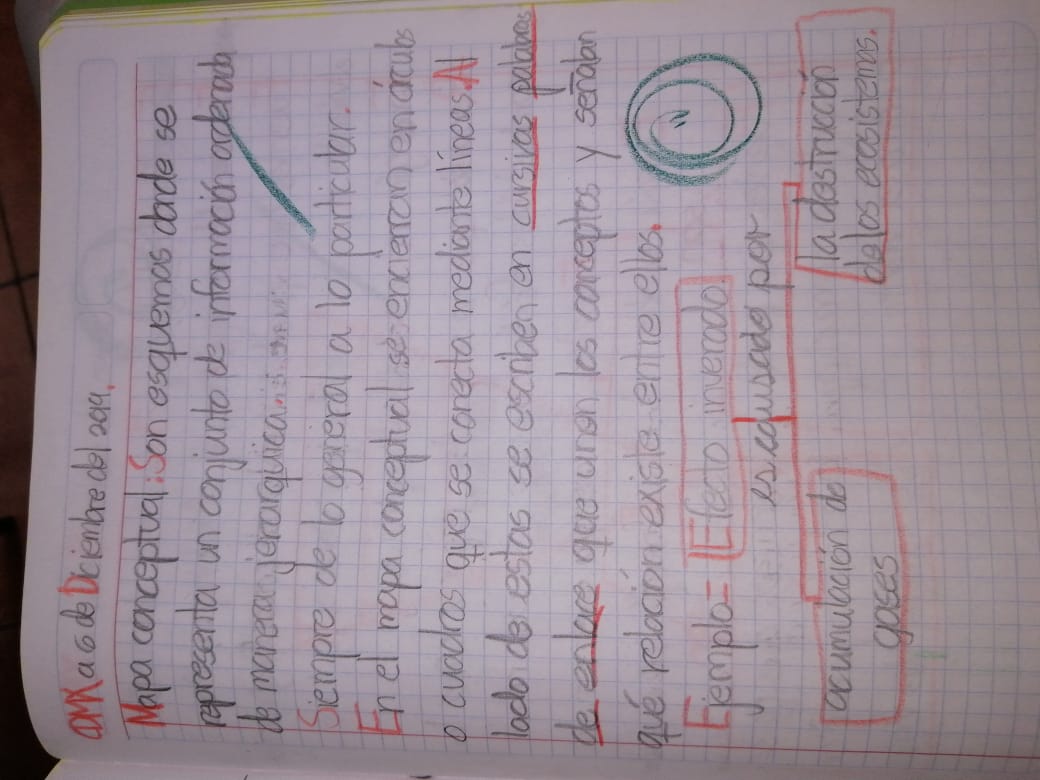 CDMX a 6 de Diciembre del 2019.
Mapa conceptual: Son esquemas donde se
representa un conjunto de información ordenada
de manera jerarquica.
Siempre de lo general a lo particular.
En el mapa conceptual se encierran en círculos
o cuadros que se conecta mediante líneas. Al
lado de estas se escriben en cursivas palabras
de enlace que unen los conceptos y señalan
qué relación existe entre ellos.
Ejemplo= Efecto inverado.
es causado por
acumulación de
gases
la destrucción
de los ecosistemas.